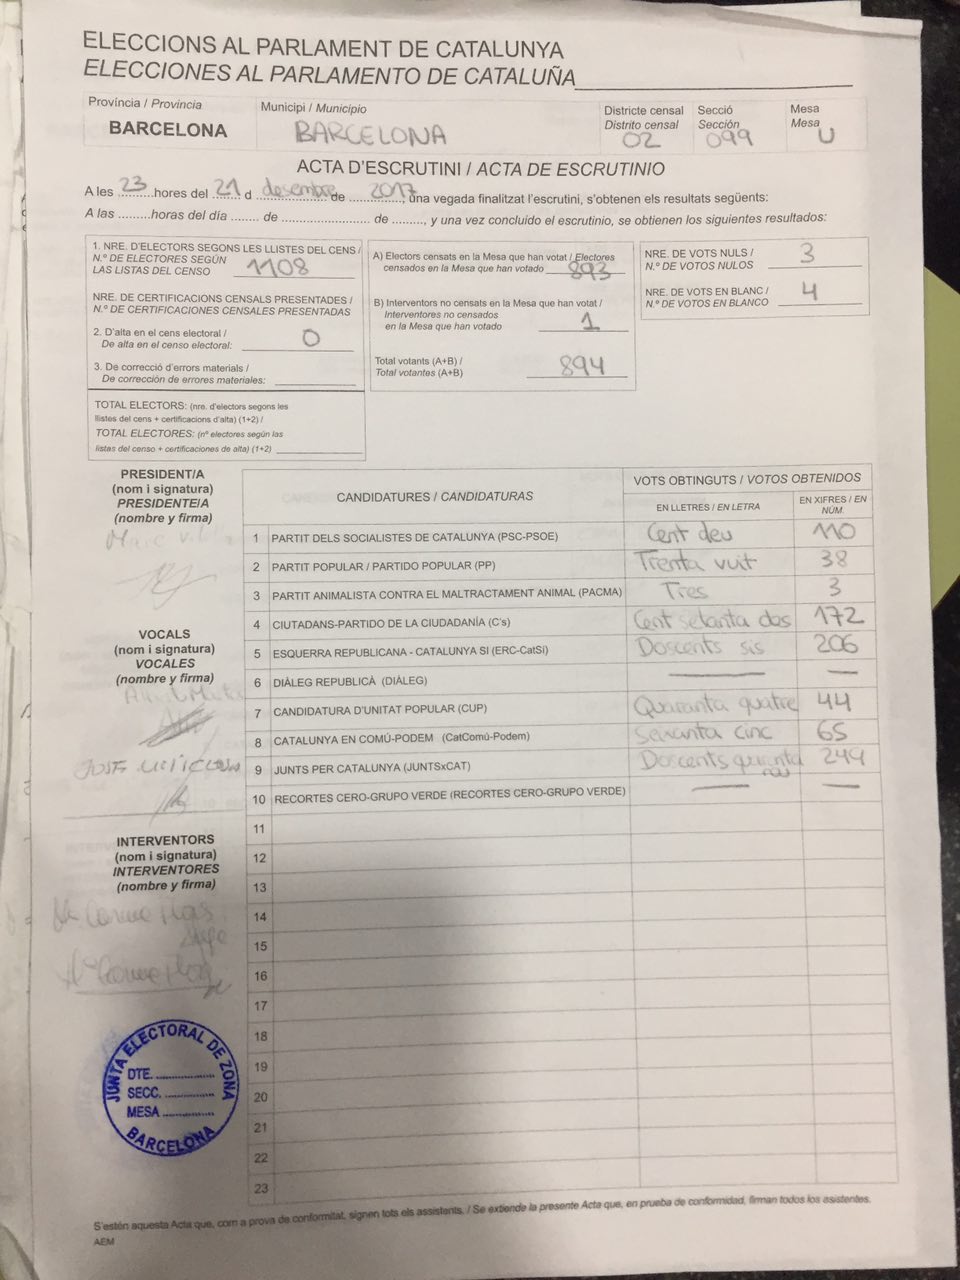 ELECCIONS AL PARLAMENT DE CATALUNYA
ELECCIONES AL PARLAMENTO DE CATALUÑA
Província / Provincia
BARCELONA
Municipi / Municipio
BARCELONA
Districte censal
Distrito censal
02
Secció
Sección
099
Mesa
Mesa
U
ACTA D'ESCRUTINI / ACTA DE ESCRUTINIO
A les 23 hores del 21 d desembre de 2017, una vegada finalitzat l'escrutini, s'obtenen els resultats següents:
A las .........horas del día ....... de ....................... de ........, y una vez concluido el escrutinio, se obtienen los siguientes resultados:
1. NRE. D'ELECTORS SEGONS LES LLISTES DEL CENS /
N.º DE ELECTORES SEGÚN
LAS LISTAS DEL CENSO 1108
NRE. DE CERTIFICACIONS CENSALS PRESENTADES /
N.º DE CERTIFICACIONES CENSALES PRESENTADAS
2. D'alta en el cens electoral /
De alta en el censo electoral: 0
3. De correcció d'errors materials /
De corrección de errores materiales:
TOTAL ELECTORS: (nre. d'electors segons les
llistes del cens + certificacions d'alta) (1+2) /
TOTAL ELECTORES: (nº electores según las
listas del censo + certificaciones de alta) (1+2)
A) Electors censats en la Mesa que han votat / Electores
censados en la Mesa que han votado 893
B) Interventors no censats en la Mesa que han votat /
Interventores no censados
en la Mesa que han votado 1
Total votants (A+B) /
Total votantes (A+B) 894
NRE. DE VOTS NULS /
N.º DE VOTOS NULOS 3
NRE. DE VOTS EN BLANC /
N.º DE VOTOS EN BLANCO 4
PRESIDENT/A
(nom i signatura)
PRESIDENTE/A
(nombre y firma)
Marc
VOCALS
(nom i signatura)
VOCALES
(nombre y firma)
JOSE
INTERVENTORS
(nom i signatura)
INTERVENTORES
(nombre y firma)
Carme
Carme
CANDIDATURES / CANDIDATURAS
VOTS OBTINGUTS / VOTOS OBTENIDOS
EN LLETRES / EN LETRA
EN XIFRES / EN NÚM.
1 PARTIT DELS SOCIALISTES DE CATALUNYA (PSC-PSOE) Cent deu 110
2 PARTIT POPULAR / PARTIDO POPULAR (PP) Trenta vuit 38
3 PARTIT ANIMALISTA CONTRA EL MALTRACTAMENT ANIMAL (PACMA) Tres 3
4 CIUTADANS-PARTIDO DE LA CIUDADANÍA (C's) Cent setanta dos 172
5 ESQUERRA REPUBLICANA - CATALUNYA SI (ERC-CatSí) Doscents sis 206
6 DIÀLEG REPUBLICÀ (DIÀLEG) — —
7 CANDIDATURA D'UNITAT POPULAR (CUP) Quaranta quatre 44
8 CATALUNYA EN COMÚ-PODEM (CatComú-Podem) Seixanta cinc 65
9 JUNTS PER CATALUNYA (JUNTSxCAT) Doscents
10 RECORTES CERO-GRUPO VERDE (RECORTES CERO-GRUPO VERDE) — —
11
12
13
14
15
16
17
18
19
20
21
22
23
JUNTA ELECTORAL DE ZONA
DTE. ..............
SECC. ............
MESA .............
BARCELONA
S'estén aquesta Acta que, com a prova de conformitat, signen tots els assistents. / Se extiende la presente Acta que, en prueba de conformidad, firman todos los asistentes.
AEM